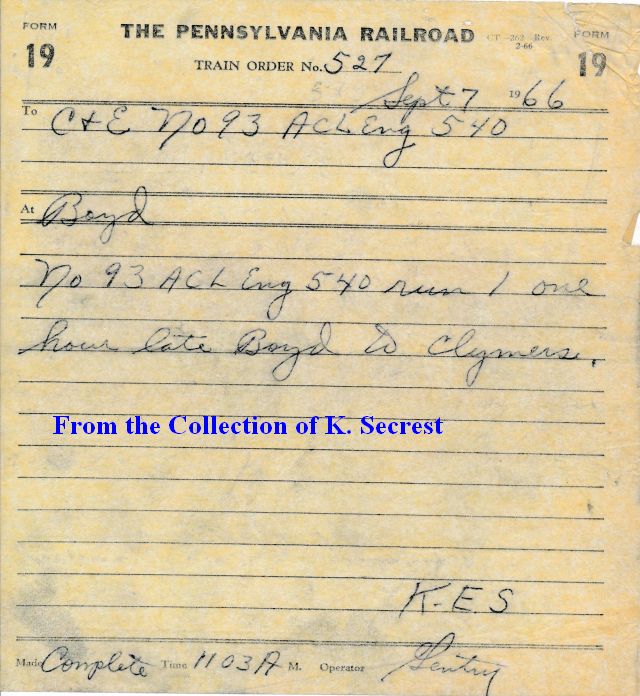 FORM 19 THE PENNSYLVANIA RAILROAD CT-262 Rev. 2-66 FORM 19
TRAIN ORDER No. 527
Sept 7 1966
To C+E No 93 ACL Eng 540
At Boyd
No 93 ACL Eng 540 run 1 one
hour late Boyd to Clymers.
From the Collection of K. Secrest
K.E.S
Made Complete Time 1103A M. Operator Gentry